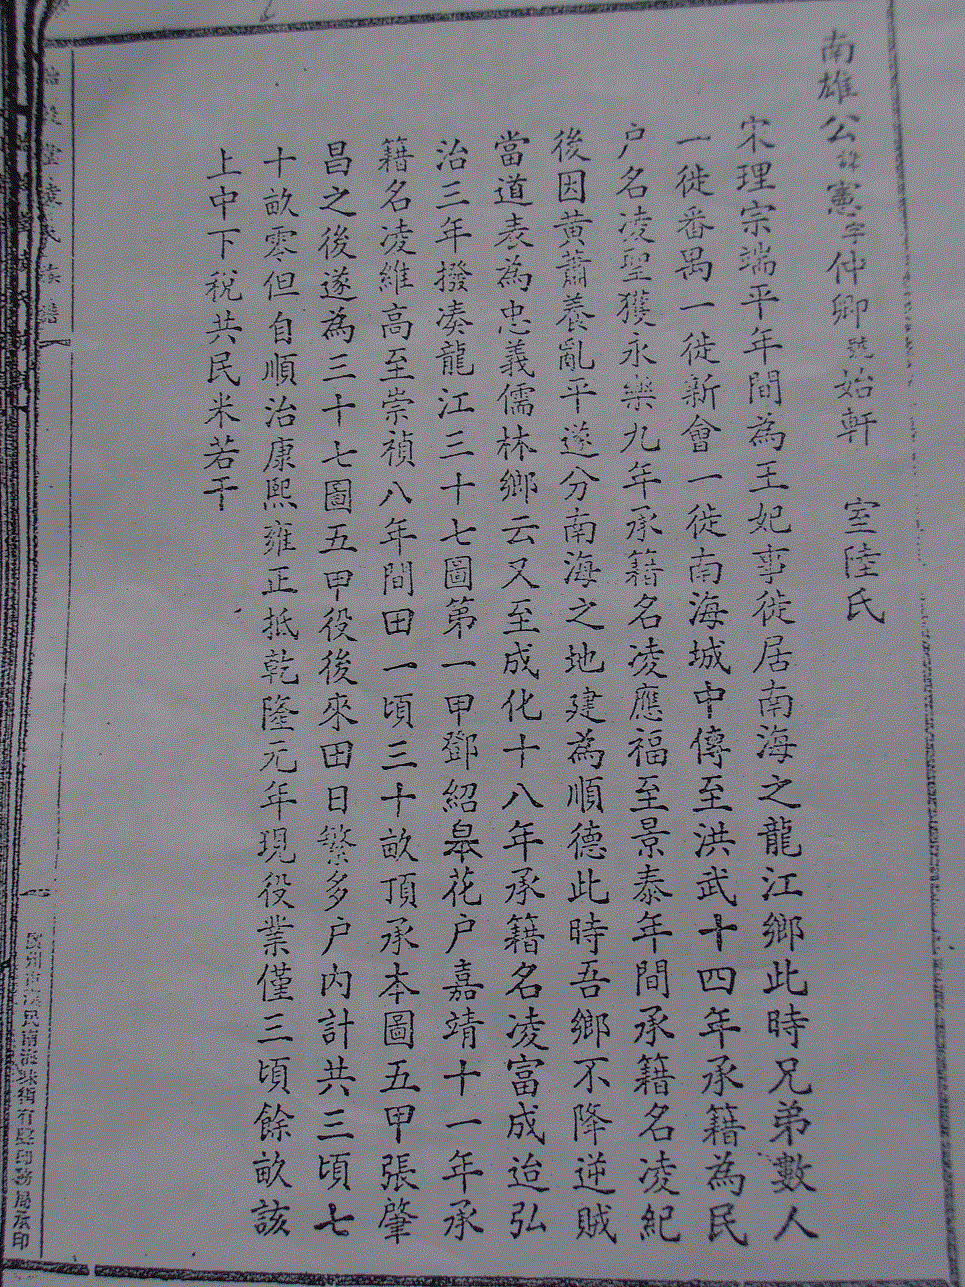 南雄公諱憲字仲卿號始軒　室陸氏
宋理宗端平年間為王妃事徙居南海之龍江鄉此時兄弟數人
一徙番禺一徙新會一徙南海城中傳至洪武十四年承籍為民
户名凌聖獲永樂九年承籍名凌應福至景泰年間承籍名凌紀
後因黃蕭養亂平遂分南海之地建為順德此時吾鄉不降逆賊
當道表為忠義儒林鄉云又至成化十八年承籍名凌富成迨弘
治三年撥凑龍江三十七圖第一甲鄧紹臯花户嘉靖十一年承
籍名凌維高至崇禎八年間田一頃三十畝頂承本圖五甲張肇
昌之後遂為三十七圖五甲役後來田日繁多户內計共三頃七
十畝零但自順治康熙雍正抵乾隆元年現役業僅三頃餘畝該
上中下稅共民米若干
堂凌氏族譜
民南街有印務局承印